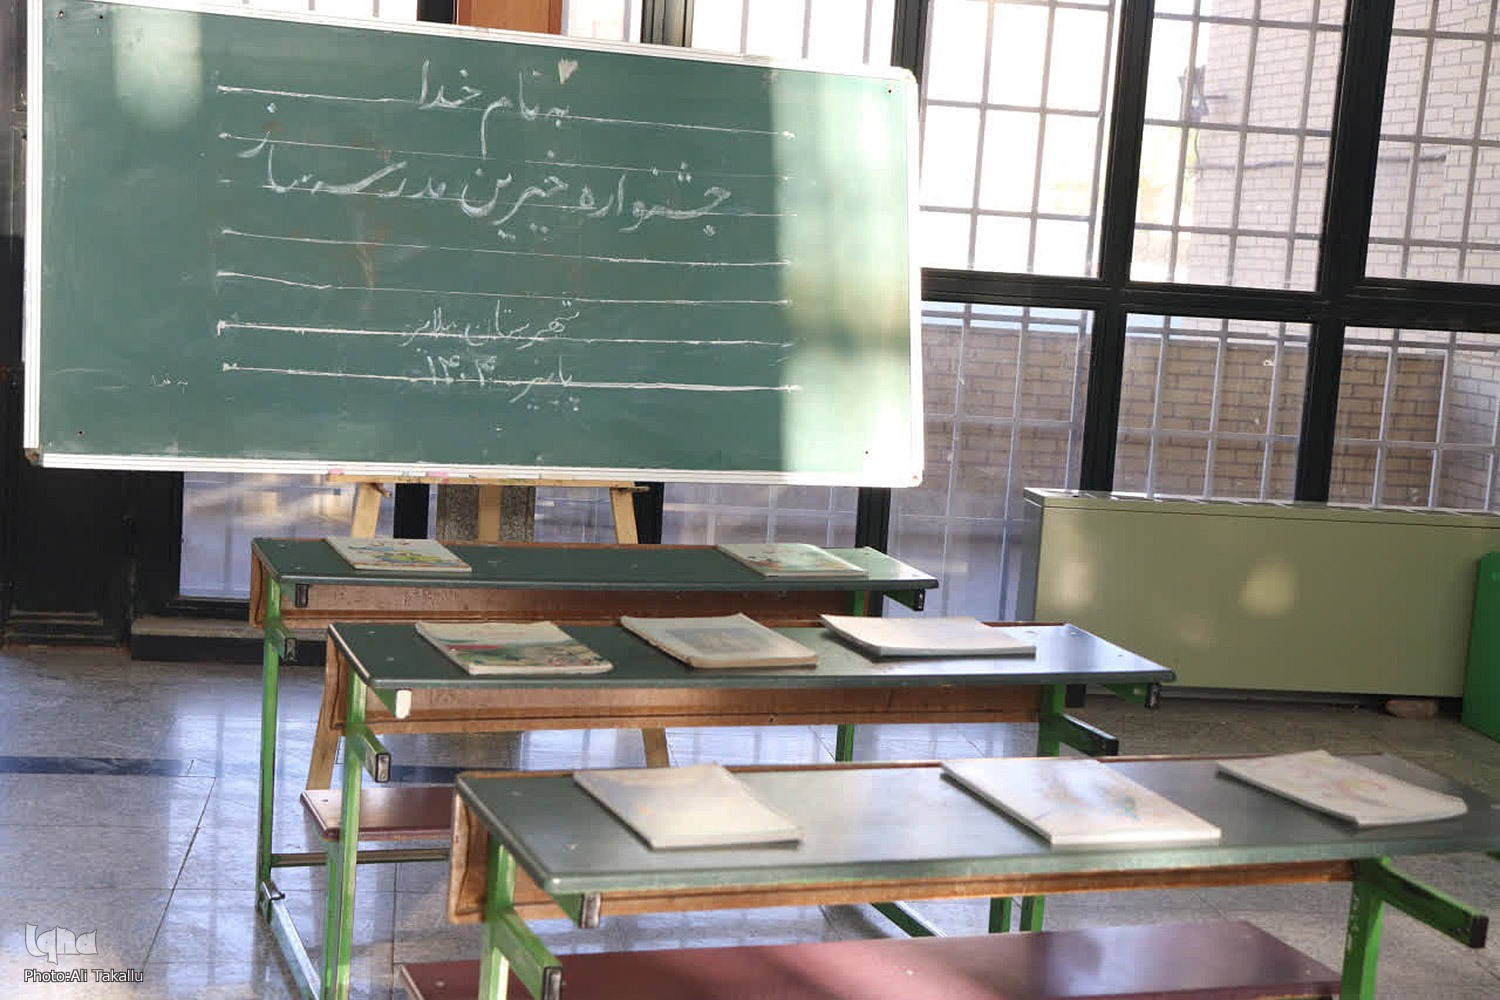 به نام خدا
جشنواره خیرین مدرسه ساز
شهرستان ملایر
پاییز ۱۴۰۳
به خدا
Iqna
Photo:Ali Takallu